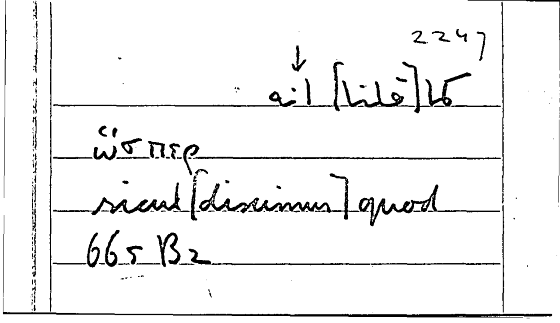 2247
↓
ὥσπερ
sicut [diximus] quod
665 B2